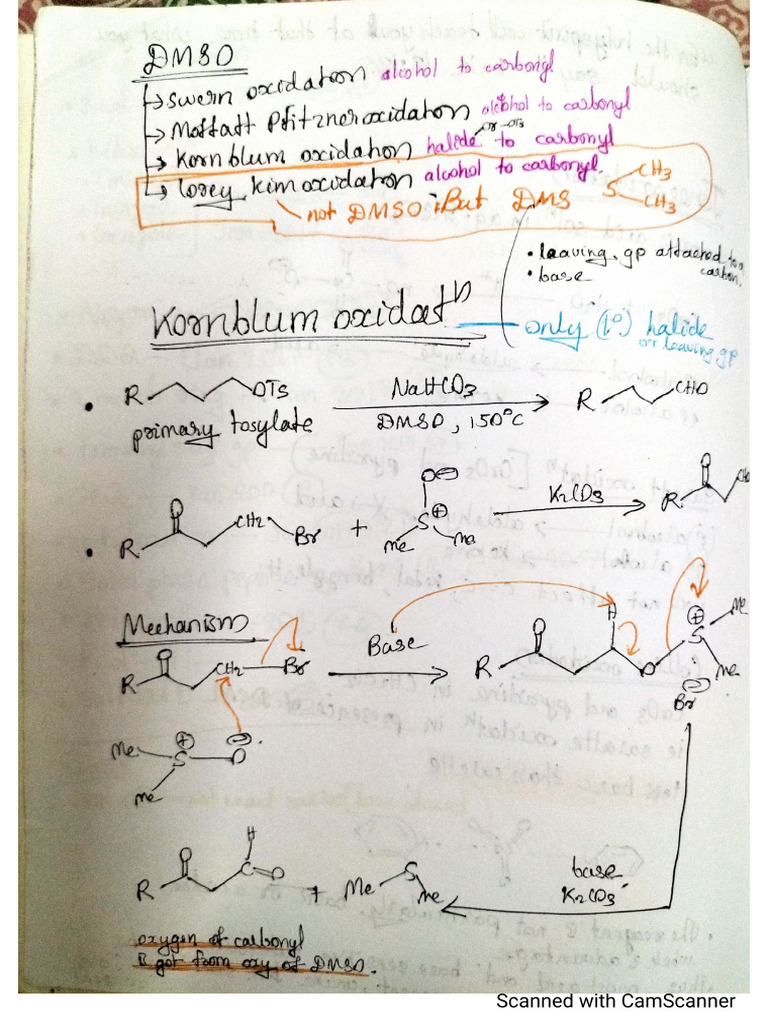 DMSO
↳ swern oxidation alcohol to carbonyl
→ Moffatt Pfitzner oxidation alcohol to carbonyl
or -OTs
→ Kornblum oxidation halide to carbonyl
↳ Corey kim oxidation alcohol to carbonyl.
S CH3 CH3
not DMSO But DMS
• leaving gp attached to carbon.
• base
Kornblum oxidatn — only (1°) halide
or leaving gp
• R OTs NaHCO3 R CHO
primary tosylate DMSO, 150°C
O⊖ O
O K2CO3
• R CH2 Br + S⊕ Me Me R
Mechanism
Base
O CH2 Br R
R O H O S⊕ Me Me
Br⊖
Me S⊕ O⊖
Me
H
O C=O
R + Me S Me
base
K2CO3
oxygen of carbonyl
is got from oxy of DMSO.
Scanned with CamScanner